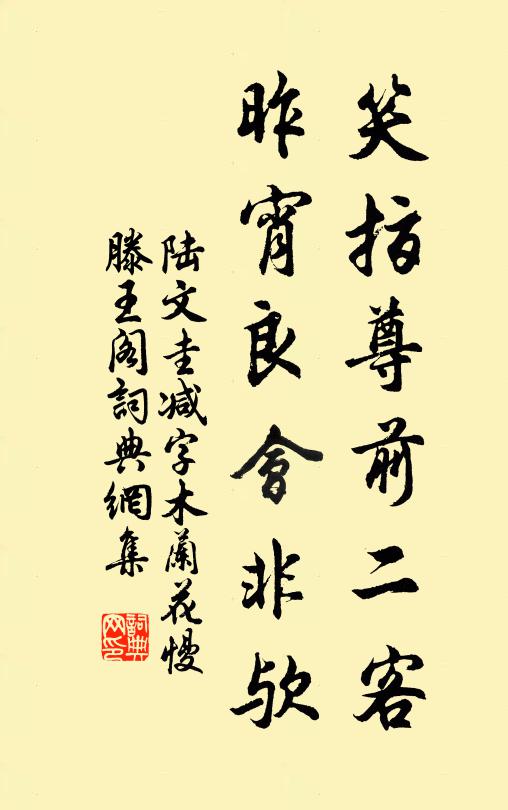 笑指尊前二客
昨宵良會非欤
陆文圭减字木蘭花慢
滕王阁詞典網集
詞典网印